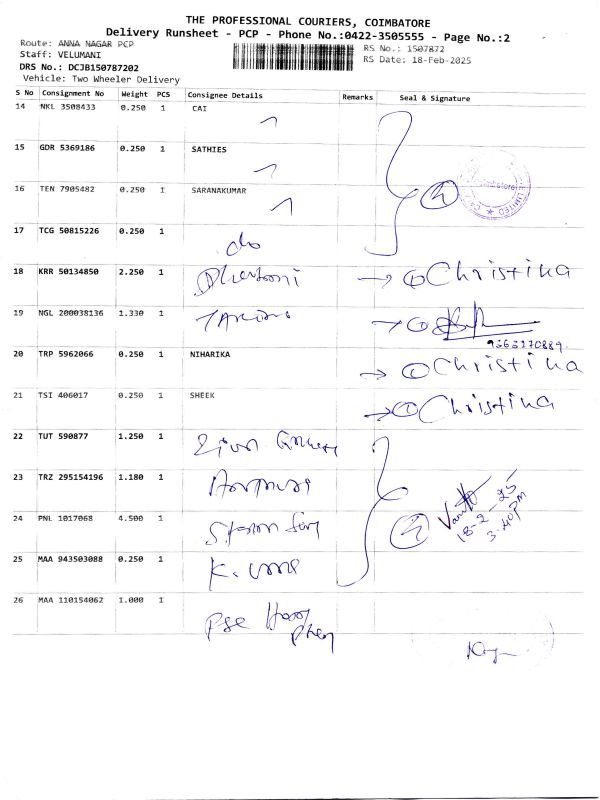 THE PROFESSIONAL COURIERS, COIMBATORE
Delivery Runsheet - PCP - Phone No.:0422-3505555 - Page No.:2
Route: ANNA NAGAR PCP
RS No.: 1507872
Staff: VELUMANI
RS Date: 18-Feb-2025
DRS No.: DCJB150787202
Vehicle: Two Wheeler Delivery
S No Consignment No Weight PCS Consignee Details Remarks Seal & Signature
14 NKL 3508433 0.250 1 CAI
15 GDR 5369186 0.250 1 SATHIES
16 TEN 7905482 0.250 1 SARANAKUMAR
LIMITED
17 TCG 50815226 0.250 1
do
18 KRR 50134850 2.250 1
→ ① Christina
19 NGL 200038136 1.330 1
→ ①
9363270889
20 TRP 5962066 0.250 1 NIHARIKA
→ ① Christina
21 TSI 406017 0.250 1 SHEEK
→ ① Christina
22 TUT 590877 1.250 1
23 TRZ 295154196 1.180 1
18-2-25
3.40PM
24 PNL 1017068 4.500 1
25 MAA 943503088 0.250 1
K.
26 MAA 110154062 1.000 1